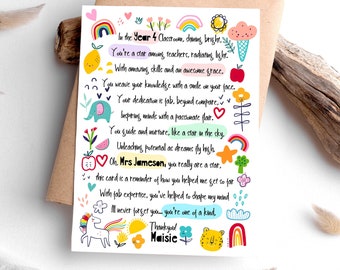 In the Year 4 Classroom, shining bright,
You're a star among teachers, radiating light.
With amazing skills and an awesome grace,
You weave your knowledge with a smile on your face.
Your dedication is fab, beyond compare,
Inspiring minds with a passionate flair.
You guide and nurture, like a star in the sky,
Unleashing potential as dreams fly high.
Oh, Mrs Jameson, you really are a star,
this card is a reminder of how you helped me get so far
With fab expertise, you've helped to shape my mind
I'll never forget you.... you're one of a kind.
Thankyou!
Maisie